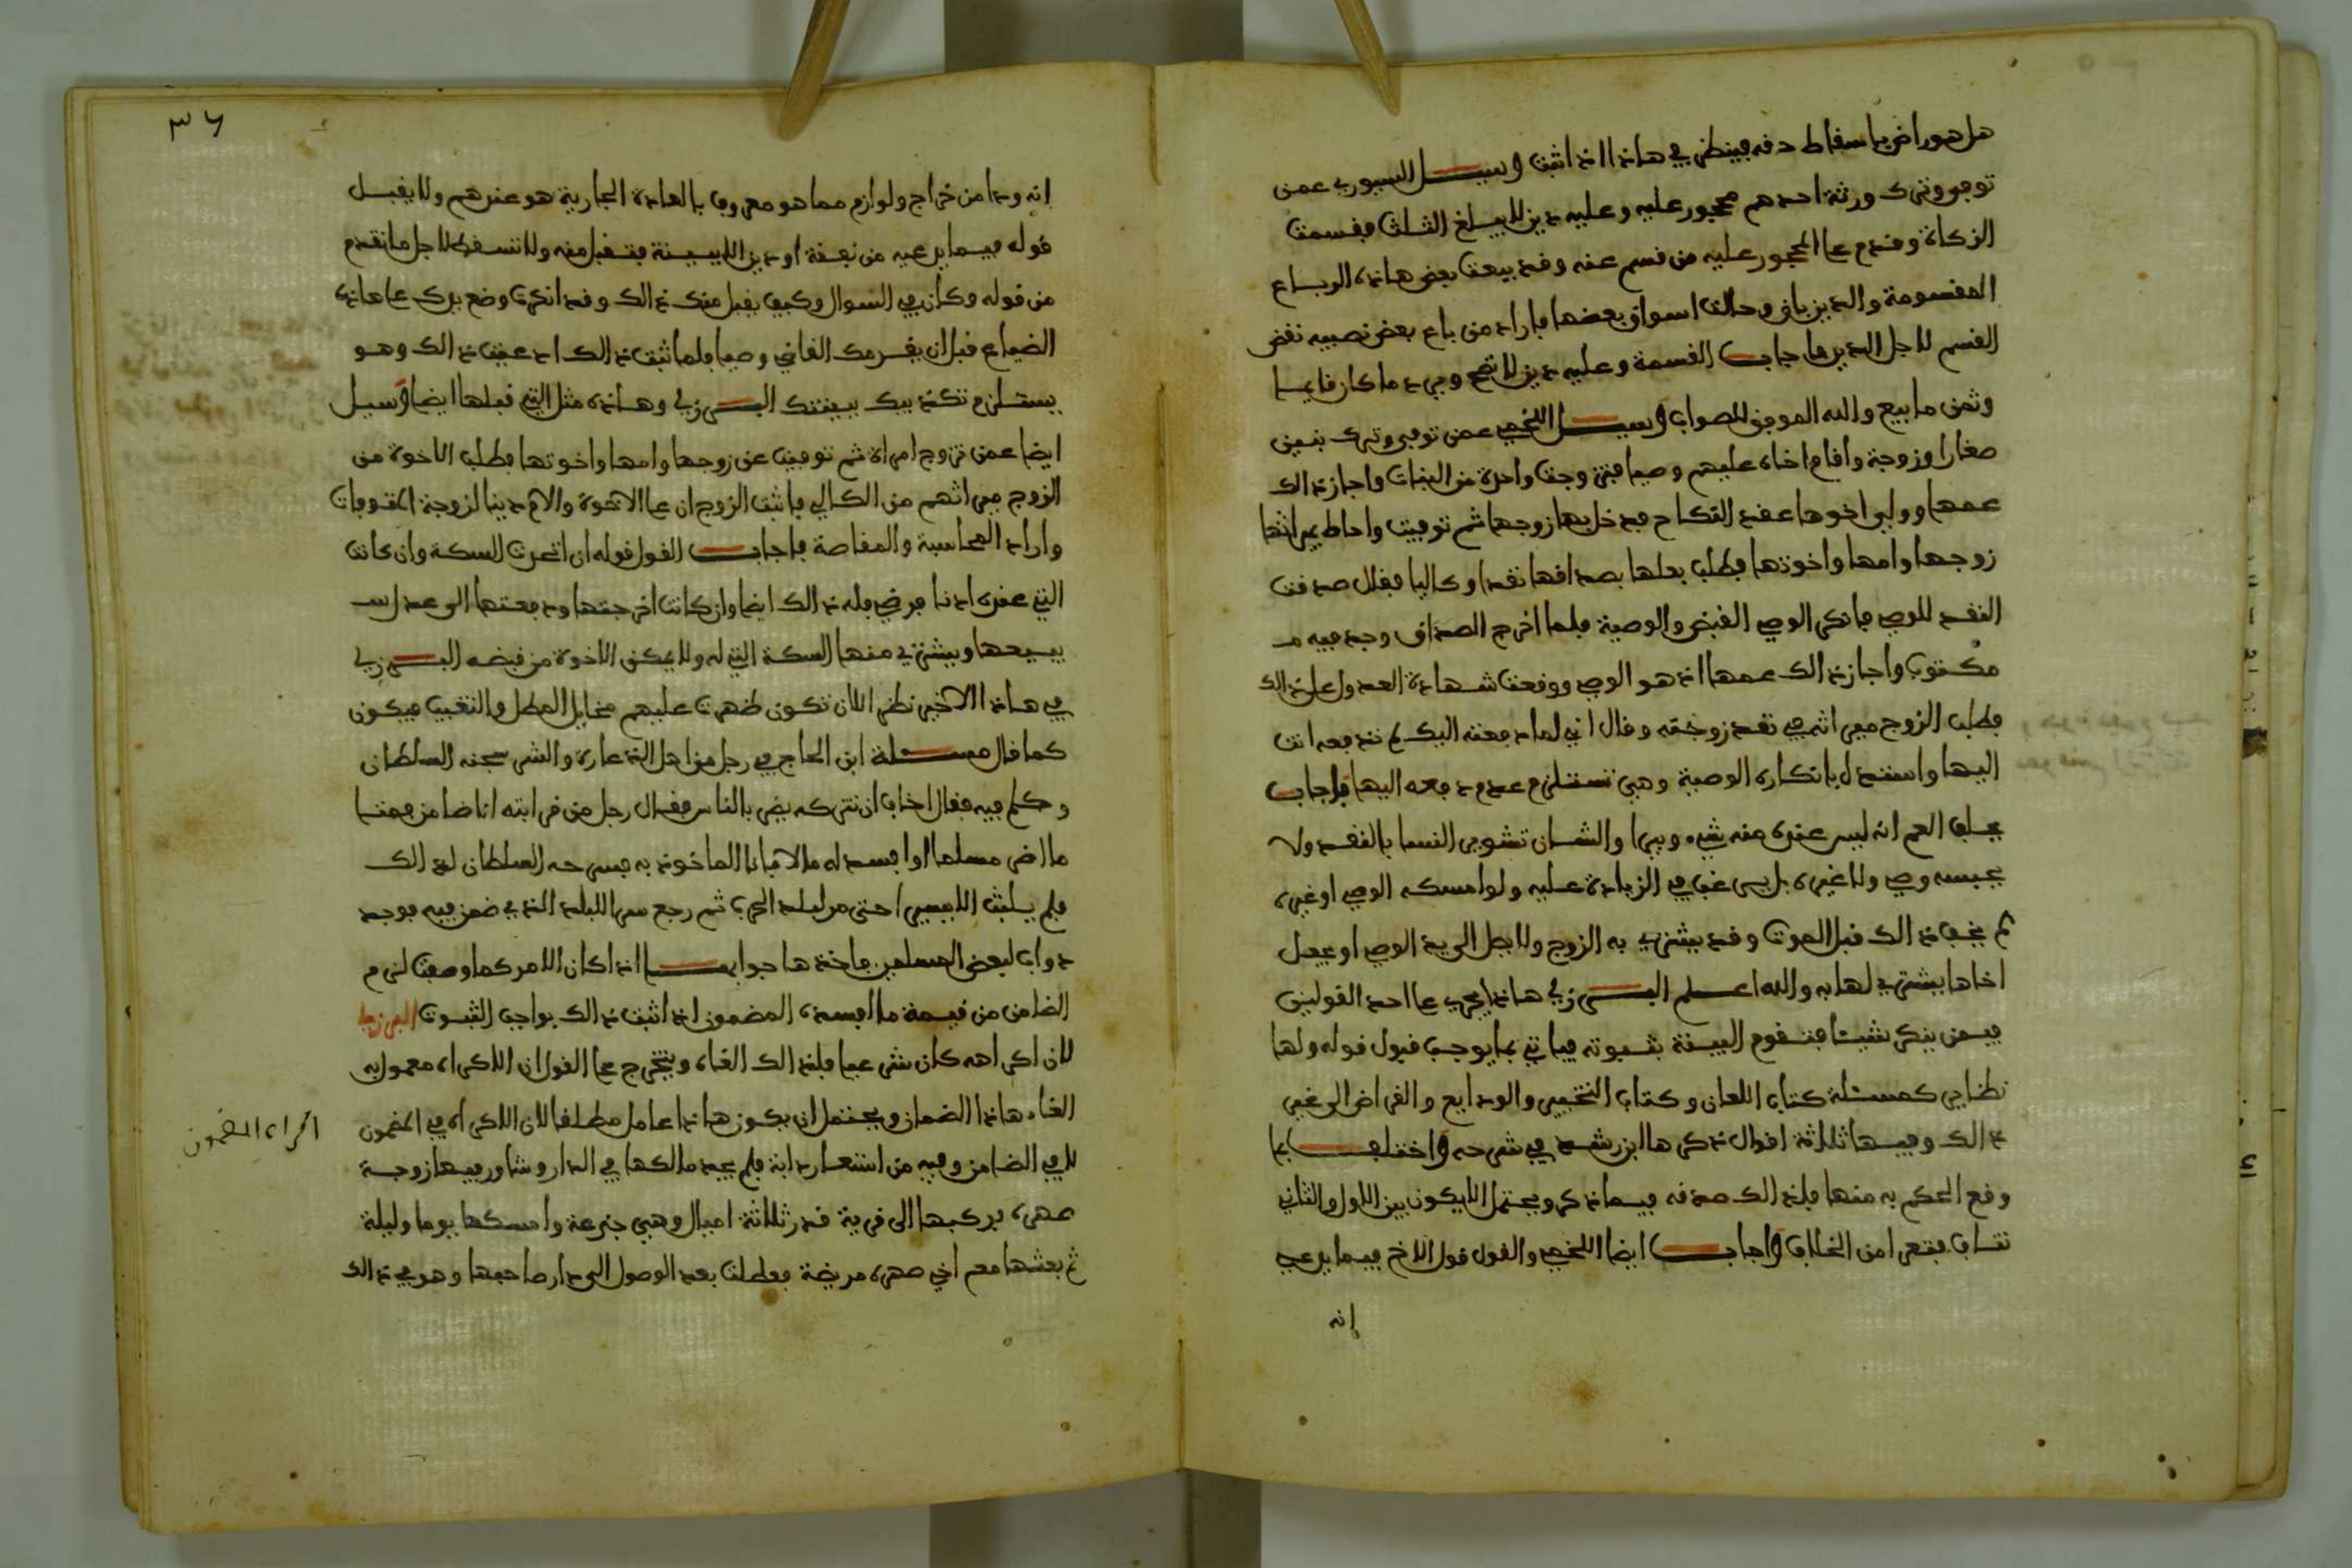 هل هو راض باسقاط حقه فينظر في هاذا اذا اثبت وسيل السيوري عمن
توفي وترك ورثة احدهم محجور عليه وعليه دين لا يبلغ الثلث فقسمت
الزكاة وقدم على المحجور عليه من قسم عنه وقد بيعت بعض هاذه الرباع
المقسومة والدين باق وحالت اسواق بعضها فاراد من باع بعض نصيبه نقض
القسم لاجل الدين فاجاب القسمة وعليه دين لا تصح ويرد ما كان قايما
وثمن ما بيع والله الموفق للصواب وسيل اللخمي عمن توفي وترك بنين
صغارا وزوجة واقام اخاه عليهم وصيا فتزوجت واحدة من البنات واجاز ذالك
عمها وولي اخوها عقد النكاح فدخل بها زوجها ثم توفيت واحاط بميراثها
زوجها وامها واخوتها فطلب بعلها بصداقها نقدا وكاليا فقال صدفت
النقد للوصي فانكر الوصي القبض والوصية فلما اخرج الصداق وجد فيه
مكتوب واجاز ذالك عمها اذ هو الوصي ووقعت شهادة العدول على ذالك
فطلب الزوج ميراثه في نقد زوجته وقال اني لما دفعته اليك لم تدفعه انت
اليها واستدل بانكاره الوصية وهي تستلزم عدم دفعه اليها فاجاب
يحلف العم انه ليس عنده منه شيء ويبرا والشان تشوير النسا بالنقد ولا
يحبسه وصي ولا غيره بل يرغب في الزيادة عليه ولو امسكه الوصي او غيره
ثم يخف ذالك قبل الموت وقد يشتري به الزوج ولا يصل الى يد الوصي او يجعل
اخاها يشتري لها به والله اعلم البرزلي هاذا يجري على احد القولين
فيمن ينكر شيئا فتقوم البينة بثبوته فياتي بما يوجب قبول قوله ولها
نظاير كمسئلة كتاب اللعان وكتاب التخيير والودايع والقراض الى غير
ذالك وفيها ثلاثة اقوال ذكرها ابن رشد في شرحه واختلف بما
وقع الحكم به منها فلذالك صدقه فيما ذكر ويحتمل الا يكون بين الاول والثاني
تناف فتعرا من الخلاف واجاب ايضا اللخمي والقول قول الاخ فيما يدعي
انه
٣٦
انه ودا من خراج ولوازم مما هو معروف بالعادة الجارية هو عندهم ولا يقبل
قوله فيما يدعيه من نفقة او دين الا ببينة فتقبل منه ولا تسقط لاجل ما تقدم
من قوله وكان في السوال وكيف يقبل منك ذالك وقد انكرت وضع يدك على هاذه
الضياع قبل ان يقدمك القاضي وصيا فلما ثبت ذالك ادعيت ذالك وهو
يستلزم تكذيبك بينتك البرزلي وهاذه مثل التي قبلها ايضا وسيل
ايضا عمن تزوج امراة ثم توفيت عن زوجها وامها واخوتها فطلب الاخوة من
الزوج ميراثهم من الكالي فاثبت الزوج ان على الاخوة والام دينا لزوجة المتوفات
واراد المحاسبة والمقاصة فاجاب القول قوله ان اتحدت السكة وان كانت
التي عنده ادنا فرضي فله ذالك ايضا وان كانت اخرجتها ودفعتها الى عدل
يبيعها ويشتري منها السكة التي له ولا يمكن الاخوة من قبضه البرزلي
في هاذا الاخير نظر الا ان تكون ظهرت عليهم مخايل المطل والتغيب فيكون
كما قال مسئلة ابن الحاج في رجل من اهل الدعارة والشر سجنه السلطان
وكلم فيه فقال اخاف ان نتركه يضر بالناس فقال رجل من قرابته انا ضامن مهما
ما اضر مسلما او افسد له مالا فانا الماخوذ به فسرحه السلطان لذالك
فلم يلبث الا يسيرا حتى مر لبلد الحرب ثم رجع سرا للبلد الذي ضمن فيه فوجد
دواب لبعض المسلمين فاخذها جوابها اذا كان الامر كما وصفت لزم
الضامن من قيمة ما افسده المضمون اذا اثبت ذالك بواجب الثبوت البرزلي
لان اكراهه كان شرعيا فلذالك الغاه ويتخرج على القول ان الاكراه معمول به
الغاء هاذا الضمان ويحتمل ان يكون هاذا عاملا مطلقا لان الاكراه في المضمون
لا في الضامن وفيه من استعار دابة فلم يجد مالكها في الدار وشاور فيها زوجة
صهره فركبها الى قرية قدر ثلاثة اميال وهي جذعة وامسكها يوما وليلة
ثم بعثها مع اخي صهره مريضة فعطلت بعد الوصول الى دار صاحبها وهو في ذالك
اكراه المضمون